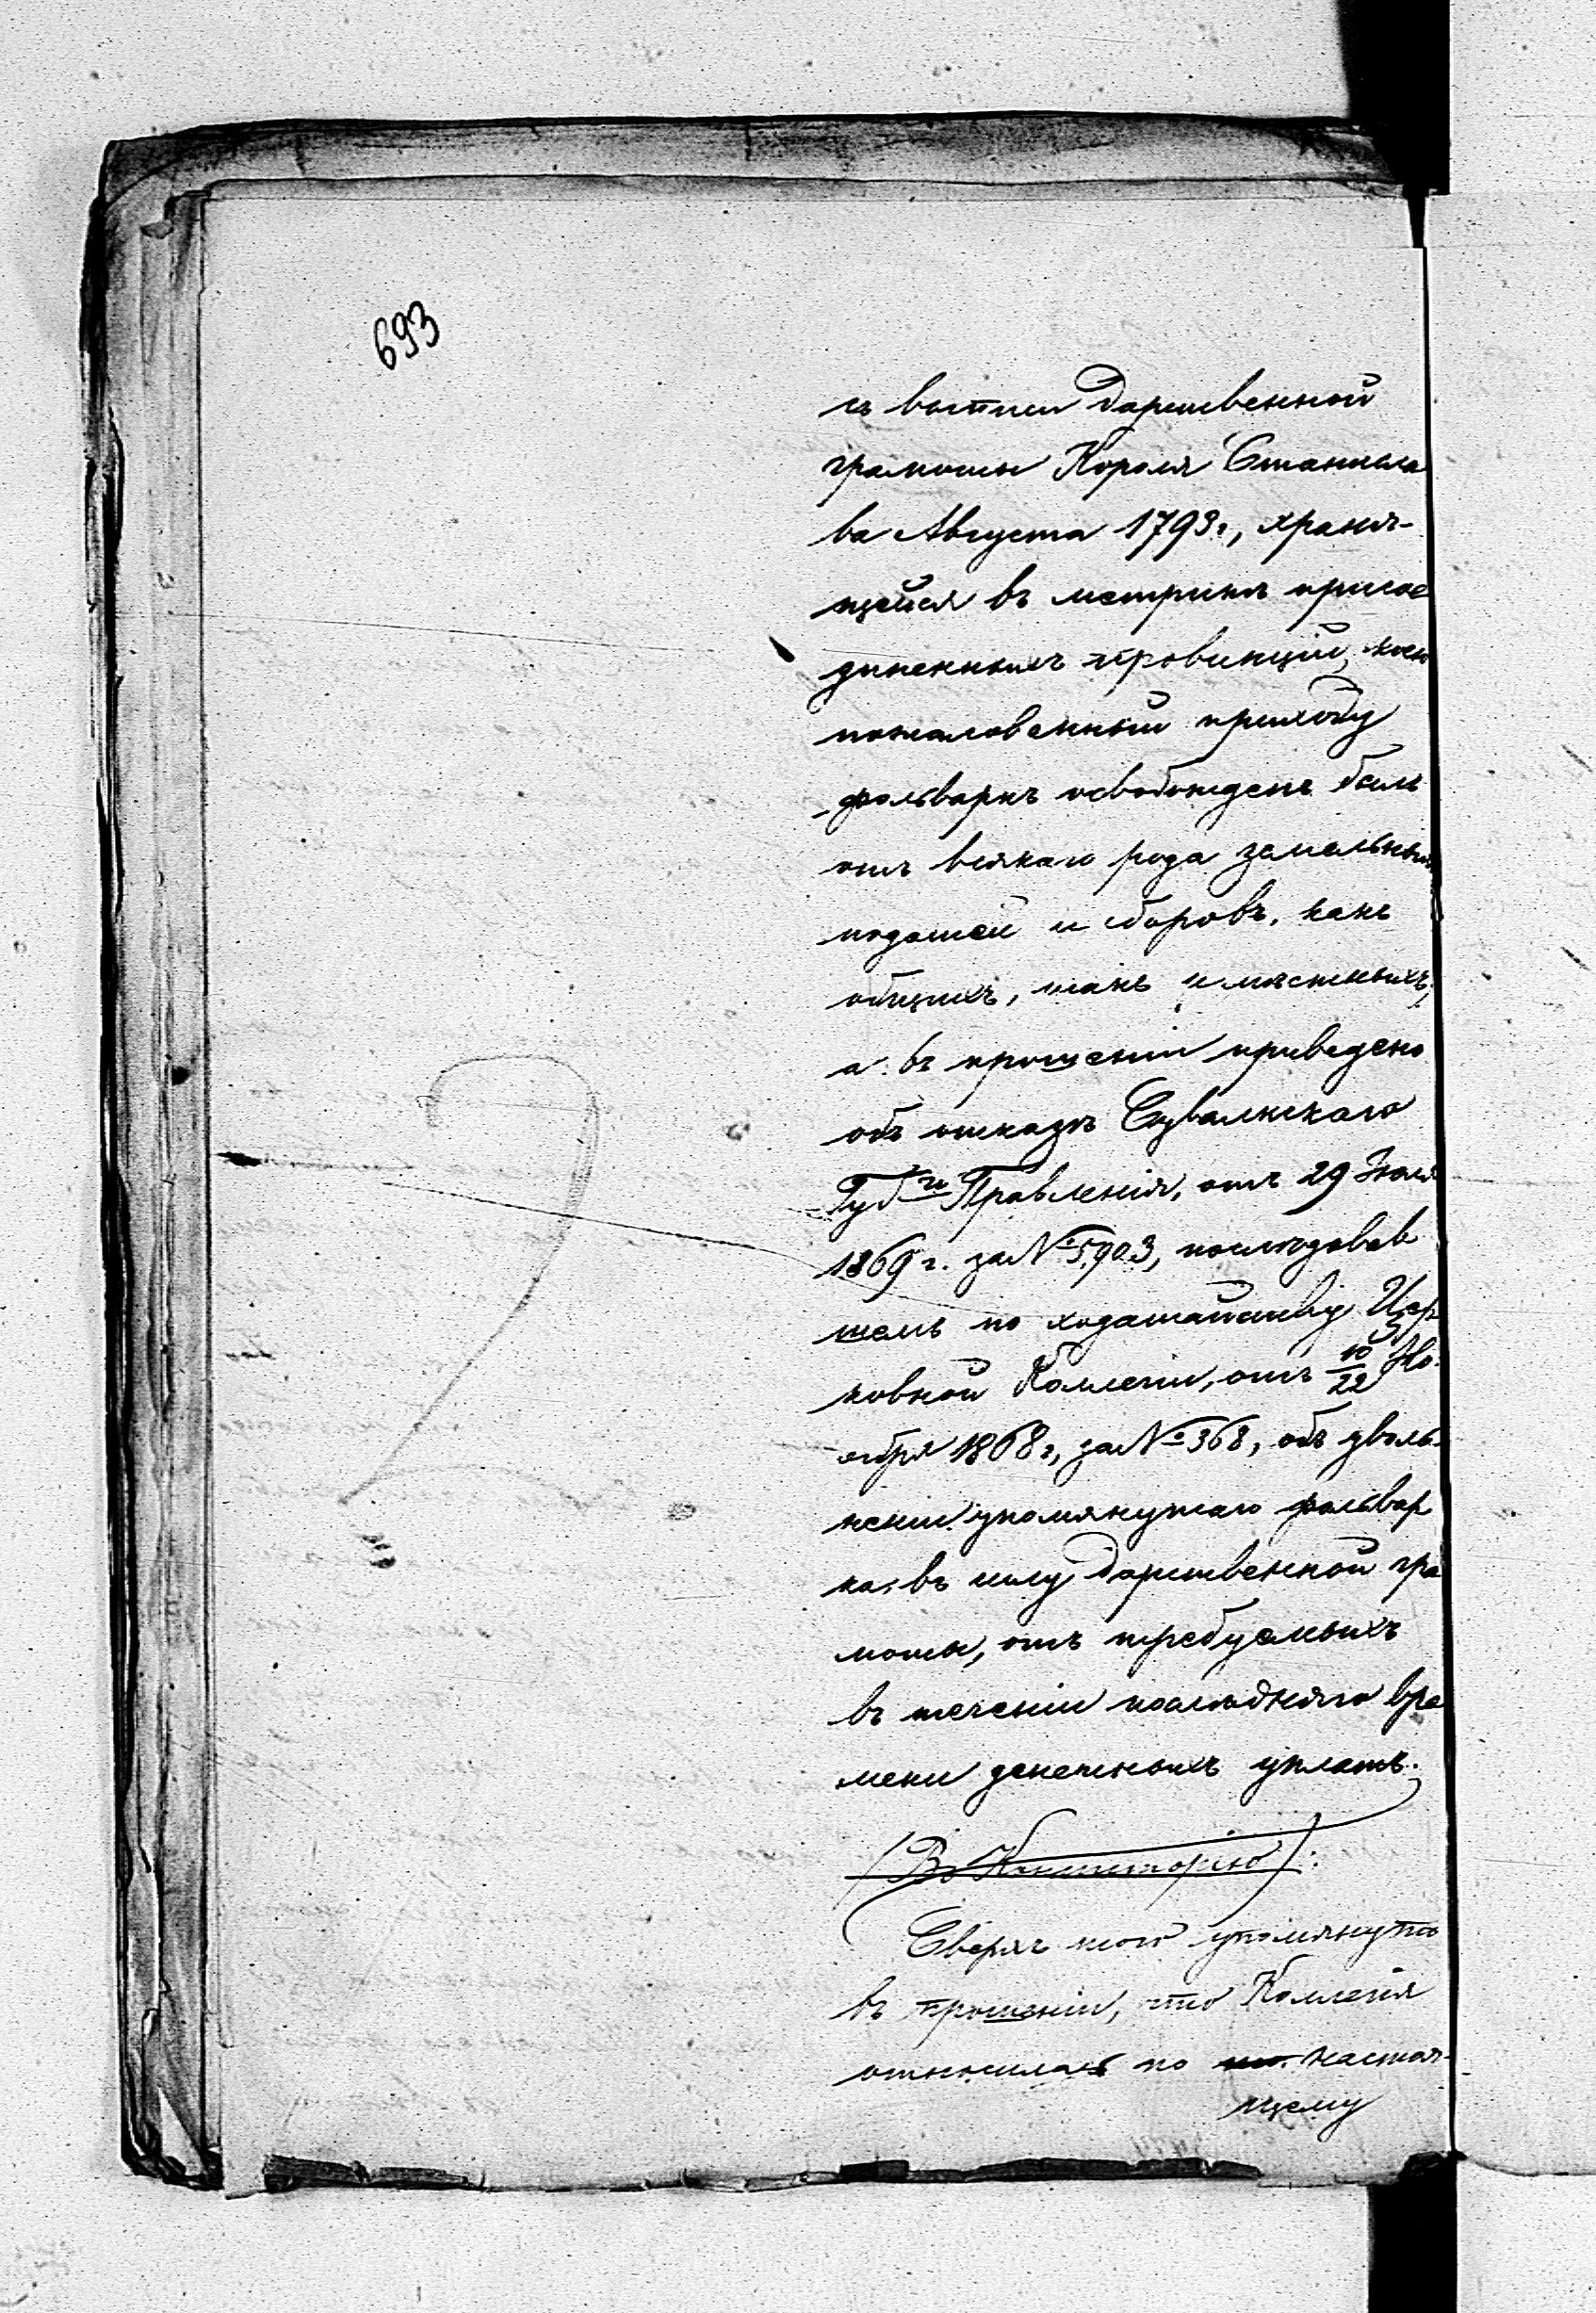 693
съ выписи дарственной
грамоты Короля Станисла
ва Августа 1793 г., храня-
щейся въ метрикѣ присое
диненныхъ провинцій, коею
пожалованный приходу
фольваркъ освобожденъ былъ
отъ всякаго рода земельныхъ
податей и сборовъ, какъ
общихъ, такъ и мѣстныхъ;
а въ прошеніи приведено
объ отказѣ Сувалкскаго
Губ-го Правленія, отъ 29 Іюля
1869 г. за № 5,903, послѣдовав
шемъ по ходатайству Цер
ковной Коллегіи, отъ 10/22 Но-
ября 1868 г., за № 368, объ уволь-
неніи упомянутаго фольвар
ка, въ силу дарственной гра
моты, отъ требуемыхъ
въ теченіи послѣдняго вре
мени денежныхъ уплатъ.
(Въ Консисторію):
Сверхъ того упомянуто
въ прошеніи, что Коллегія
относилась по настоя-
щему